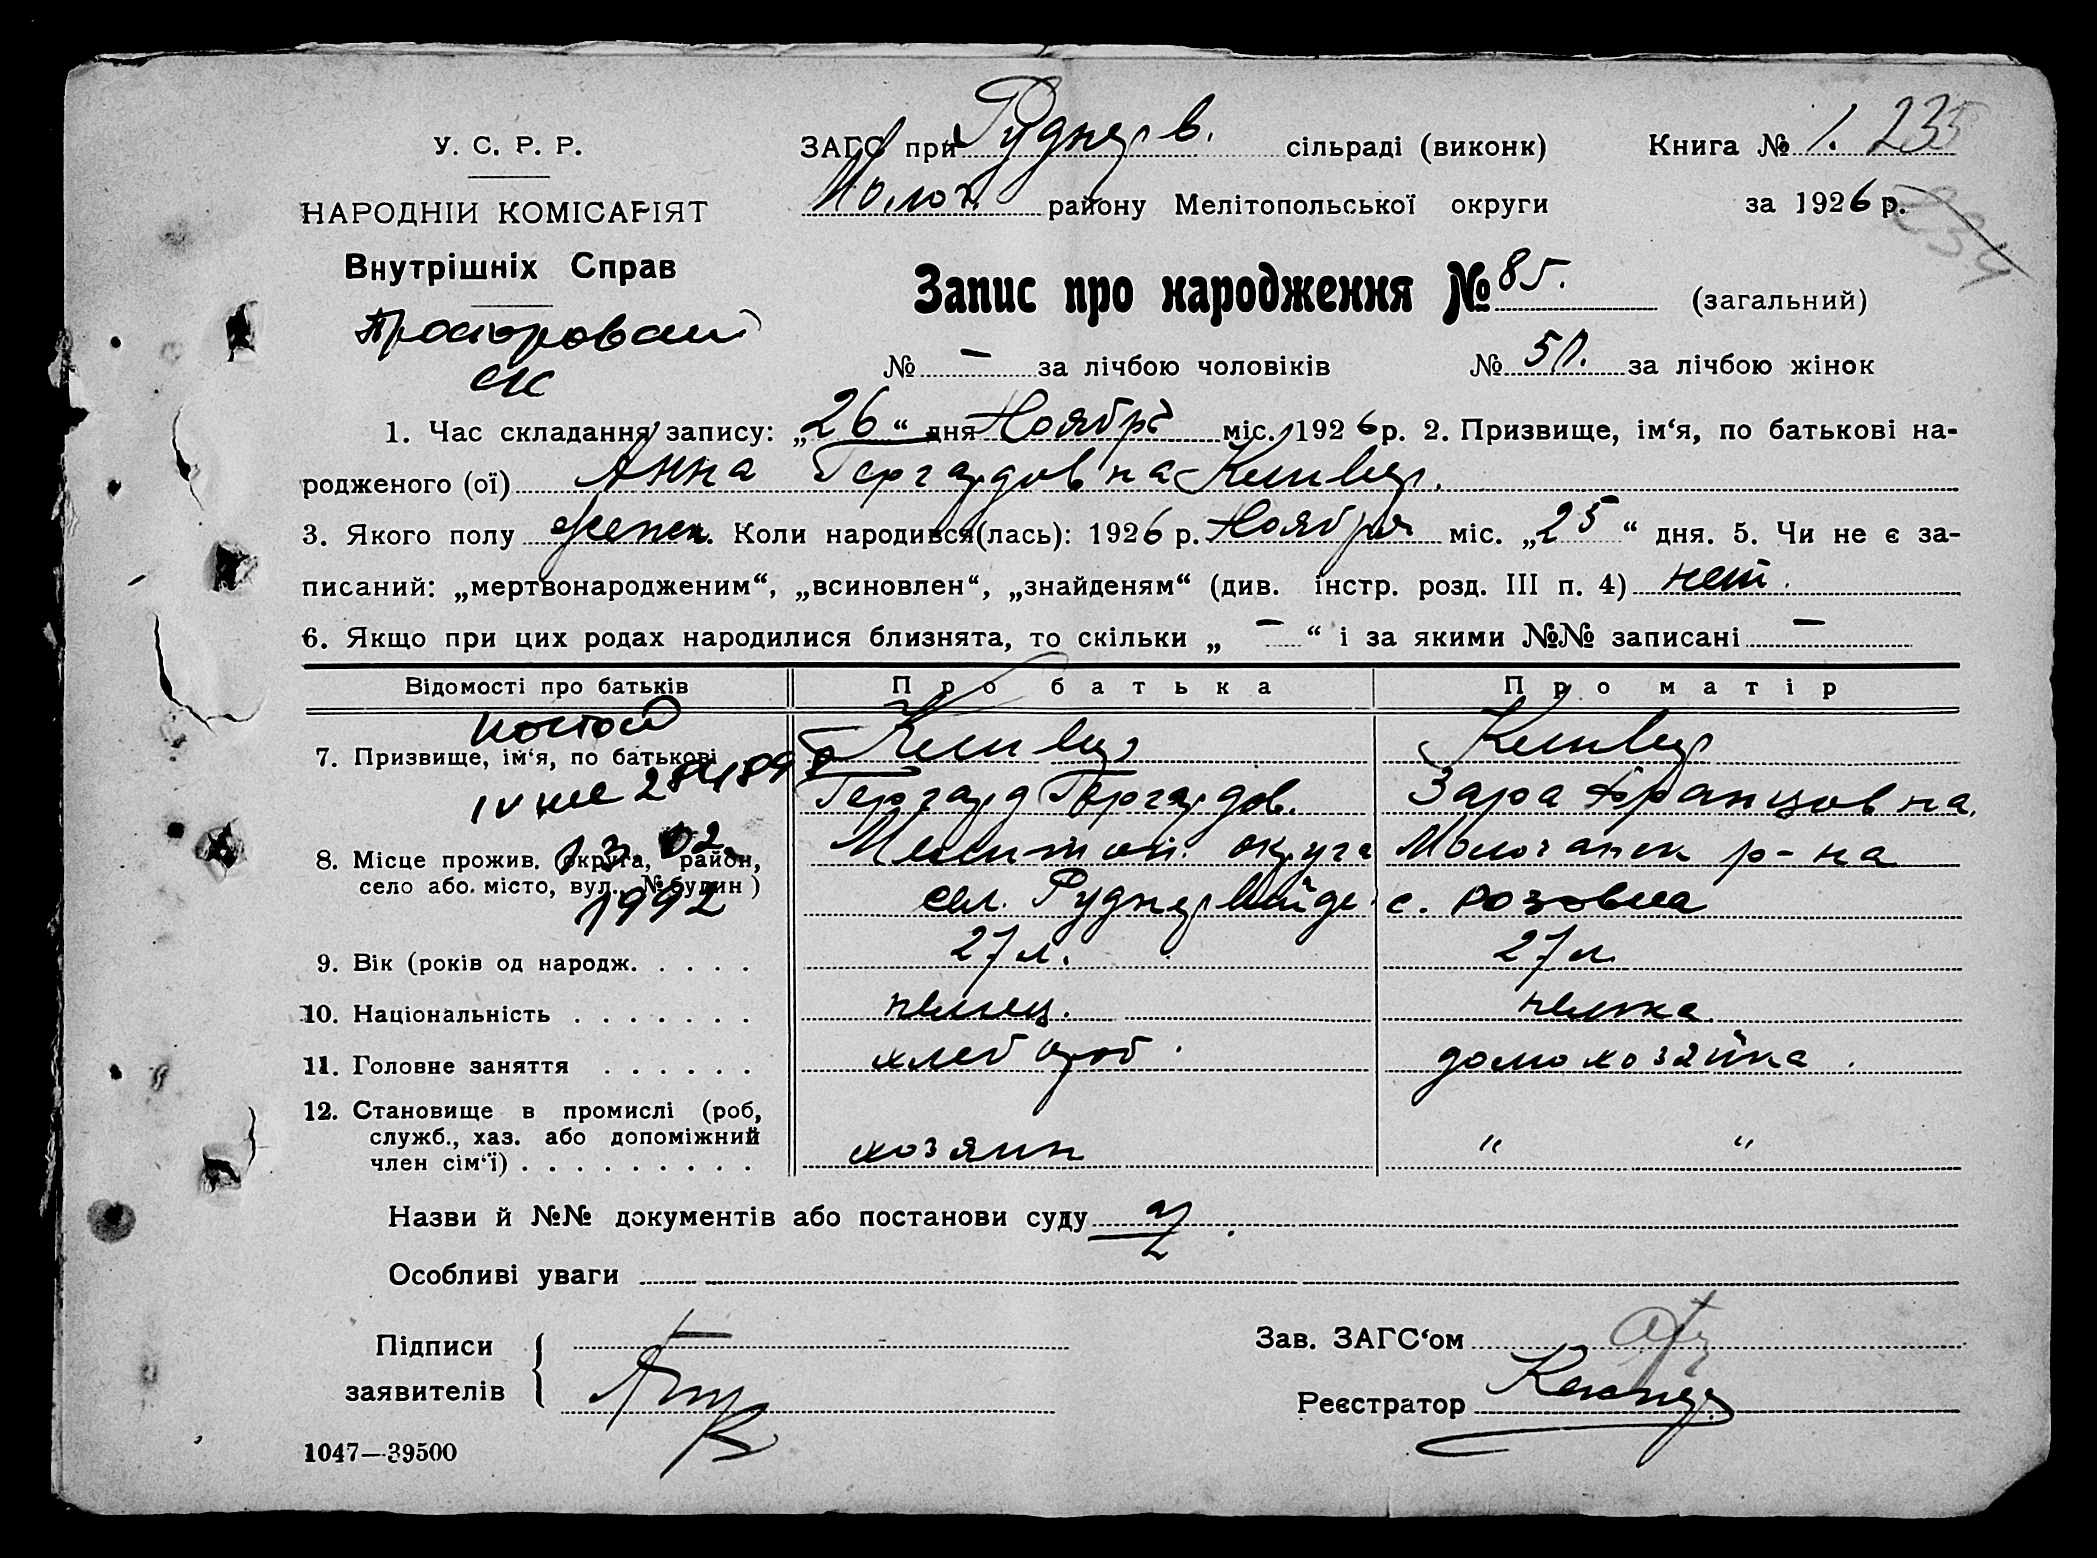 У. С. Р. Р.
НАРОДНІЙ КОМІСАРІЯТ
Внутрішніх Справ
ЗАГС при Руднерв. сільраді (виконк)
Молоч. району Мелітопольської округи
Книга № 1. 235
за 1926 р.
234
Запис про народження № 85. (загальний)
№ — за лічбою чоловіків № 51. за лічбою жінок
1. Час складання запису: „26“ дня Ноября міс. 1926 р. 2. Призвище, ім‘я, по батькові на-
родженого (ої) Анна Гергардовна
3. Якого полу женск. Коли народився(лась): 1926 р. Ноября міс. „25“ дня. 5. Чи не є за-
писаний: „мертвонародженим“, „всиновлен“, „знайденям“ (див. інстр. розд. III п. 4) нет.
6. Якщо при цих родах народилися близнята, то скільки „ — “ і за якими №№ записані —
Відомості про батьків Про батька Про матір
7. Призвище, ім‘я, по батькові
Гергард Гергардов. Зара Францовна,
13 02.
1992
8. Місце прожив. (округа, район, Мелитоп. округа Молочанск р-на
село або місто, вул., № будин) сел. Руднервайде с. Розовка
9. Вік (років од народж. . . . . 27 л. 27 л.
10. Національність . . . . . . . немец. немка
11. Головне заняття . . . . . . хлебороб. домохозяйка.
12. Становище в промислі (роб,
служб., хаз. або допоміжний
член сім‘ї) . . . . . . . . . хозяин “ “
Назви й №№ документів або постанови суду
Особливі уваги
Підписи
заявителів
Зав. ЗАГС‘ом
Реєстратор
1047—39500